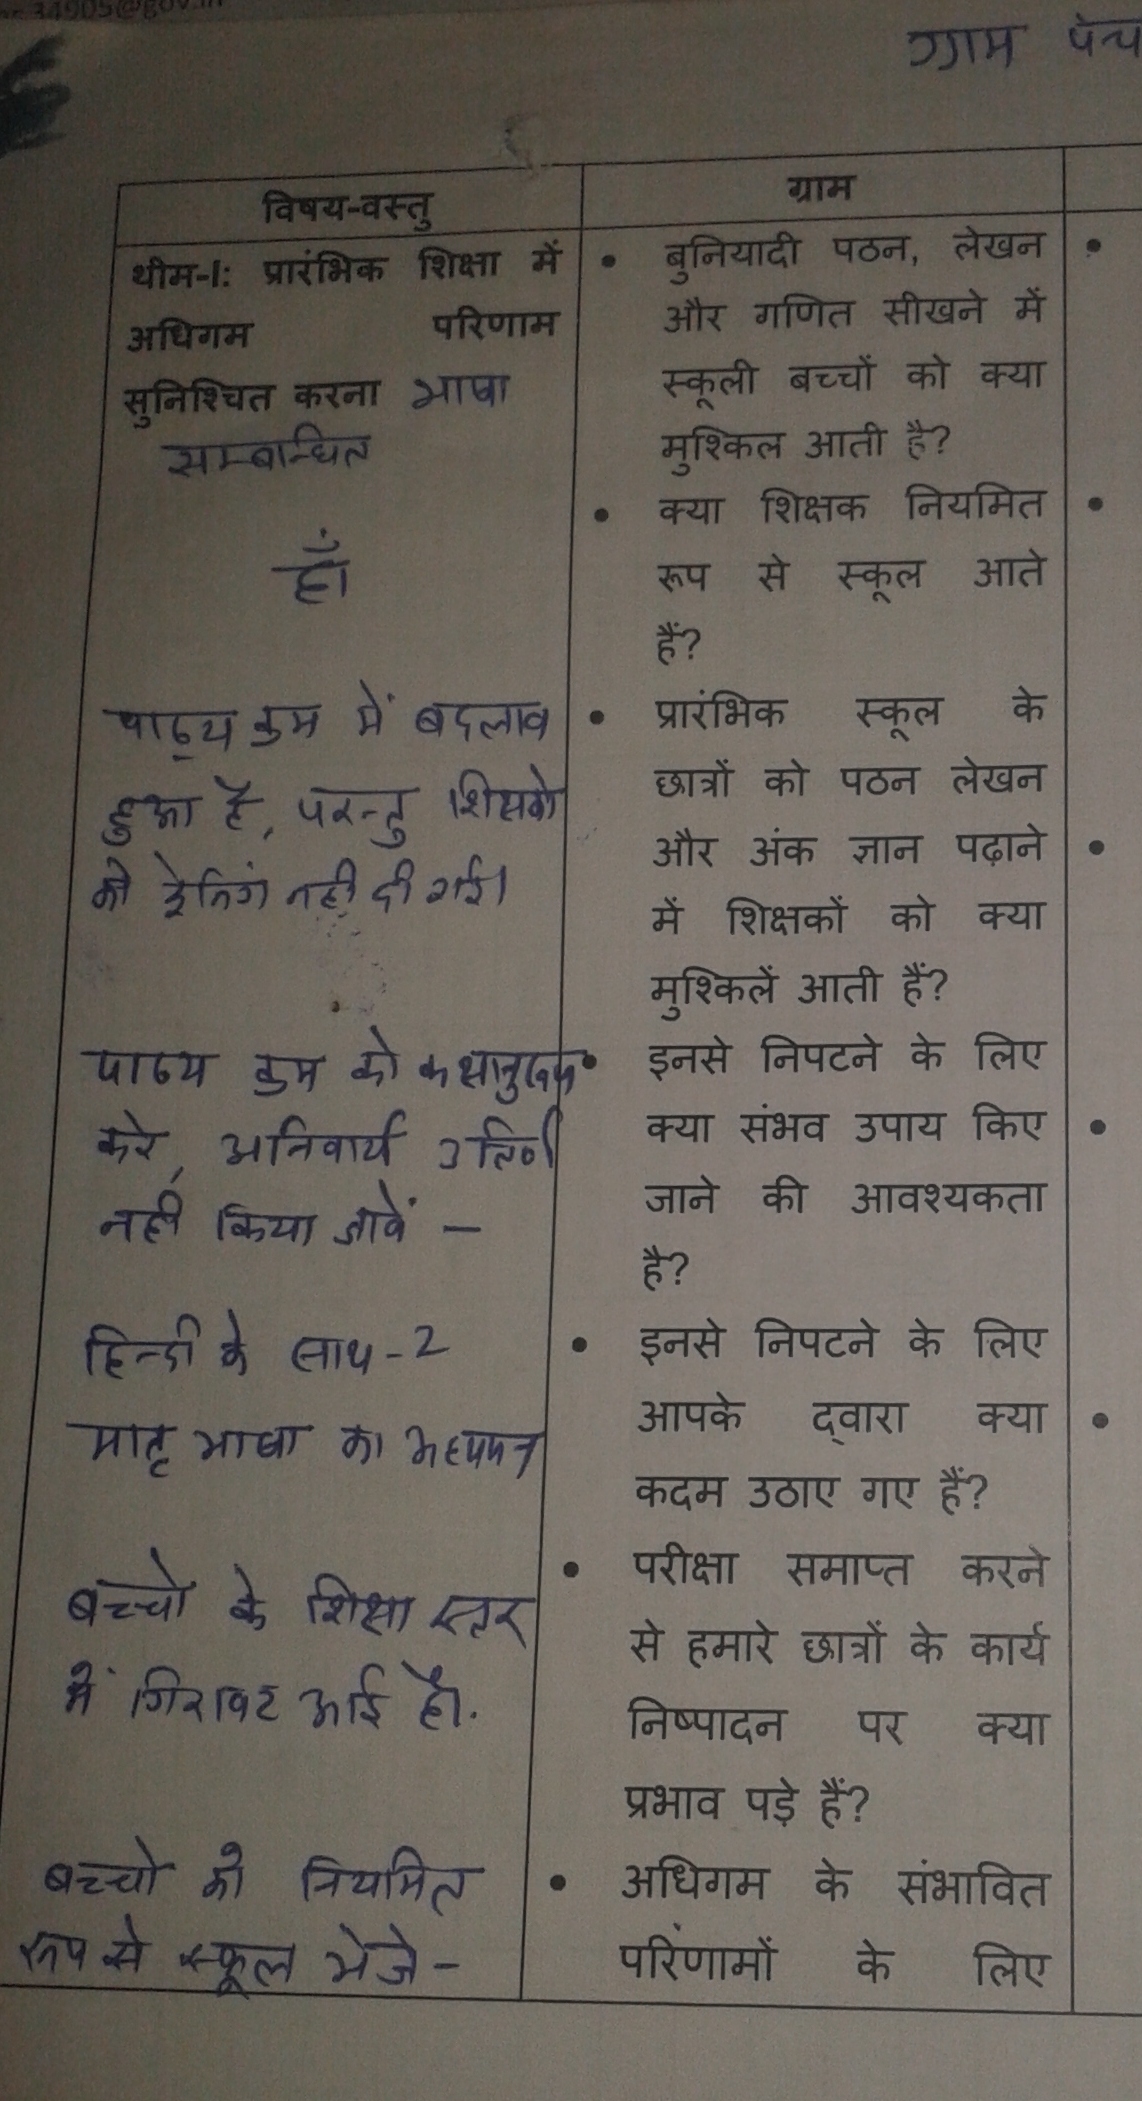 34905@gov.in
ग्राम पंच
विषय-वस्तु
ग्राम
थीम-I: प्रारंभिक शिक्षा में
अधिगम परिणाम
सुनिश्चित करना भाषा
सम्बान्धित
हाँ
पाठ्य क्रम में बदलाव
हुआ है, परन्तु शिक्षको
को ट्रेनिगं नही दी गई।
पाठ्य क्रम को
करे, अनिवार्य
नही किया जावें -
हिन्दी के साथ-2
मातृ भाषा का अध्ययन
बच्चो के शिक्षा स्तर
में गिरावट आई है।.
बच्चो को नियमित
रूप से स्कूल भेजे -
• बुनियादी पठन, लेखन
और गणित सीखने में
स्कूली बच्चों को क्या
मुश्किल आती है?
• क्या शिक्षक नियमित
रूप से स्कूल आते
हैं?
• प्रारंभिक स्कूल के
छात्रों को पठन लेखन
और अंक ज्ञान पढ़ाने
में शिक्षकों को क्या
मुश्किलें आती हैं?
• इनसे निपटने के लिए
क्या संभव उपाय किए
जाने की आवश्यकता
है?
• इनसे निपटने के लिए
आपके द्वारा क्या
कदम उठाए गए हैं?
• परीक्षा समाप्त करने
से हमारे छात्रों के कार्य
निष्पादन पर क्या
प्रभाव पड़े हैं?
• अधिगम के संभावित
परिणामों के लिए